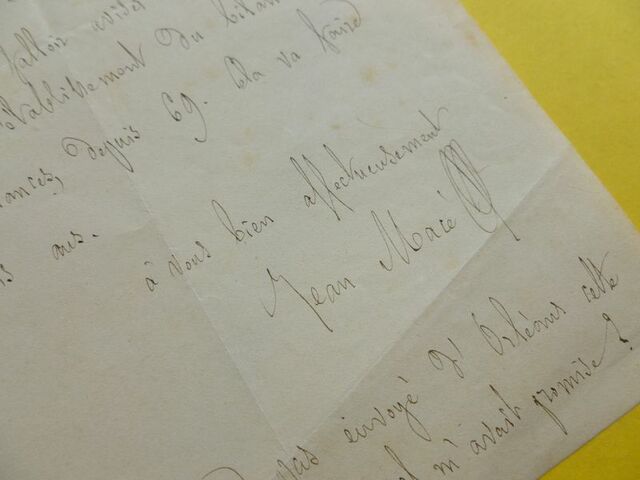 falloir aviser
établissement du bilan
depuis 69. Cela va faire
ans.
à vous bien affectueusement
Jean Macé
pas envoyé d'Orléans cette
m'avait promise?